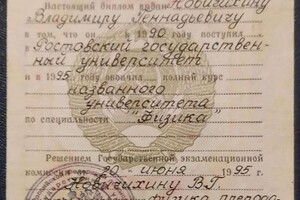 Настоящий диплом выдан Новичихину
Владимиру Геннадьевичу
в том, что он в 1990 поступил
в Ростовский государствен-
ный университет
и в 1995 окончил полный курс
названного
университета
по специальности "Физика"
Решением Государственной экзаменационной
комиссии от 20 июня 1995 г.
Новичихину В.Г.
физика, препода-